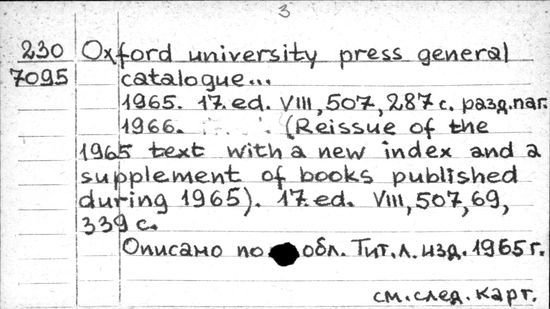 3
230 Oxford university press general
7095 catalogue...
1965. 17.ed. VIII,507,287 с. разд.паг.
1966. (Reissue of the
1965 text with a new index and a
supplement of books published
during 1965). 17.ed. VIII,507,69,
339 с.
Описано по обл. Тит.л. изд. 1965 г.
см.след.карт.